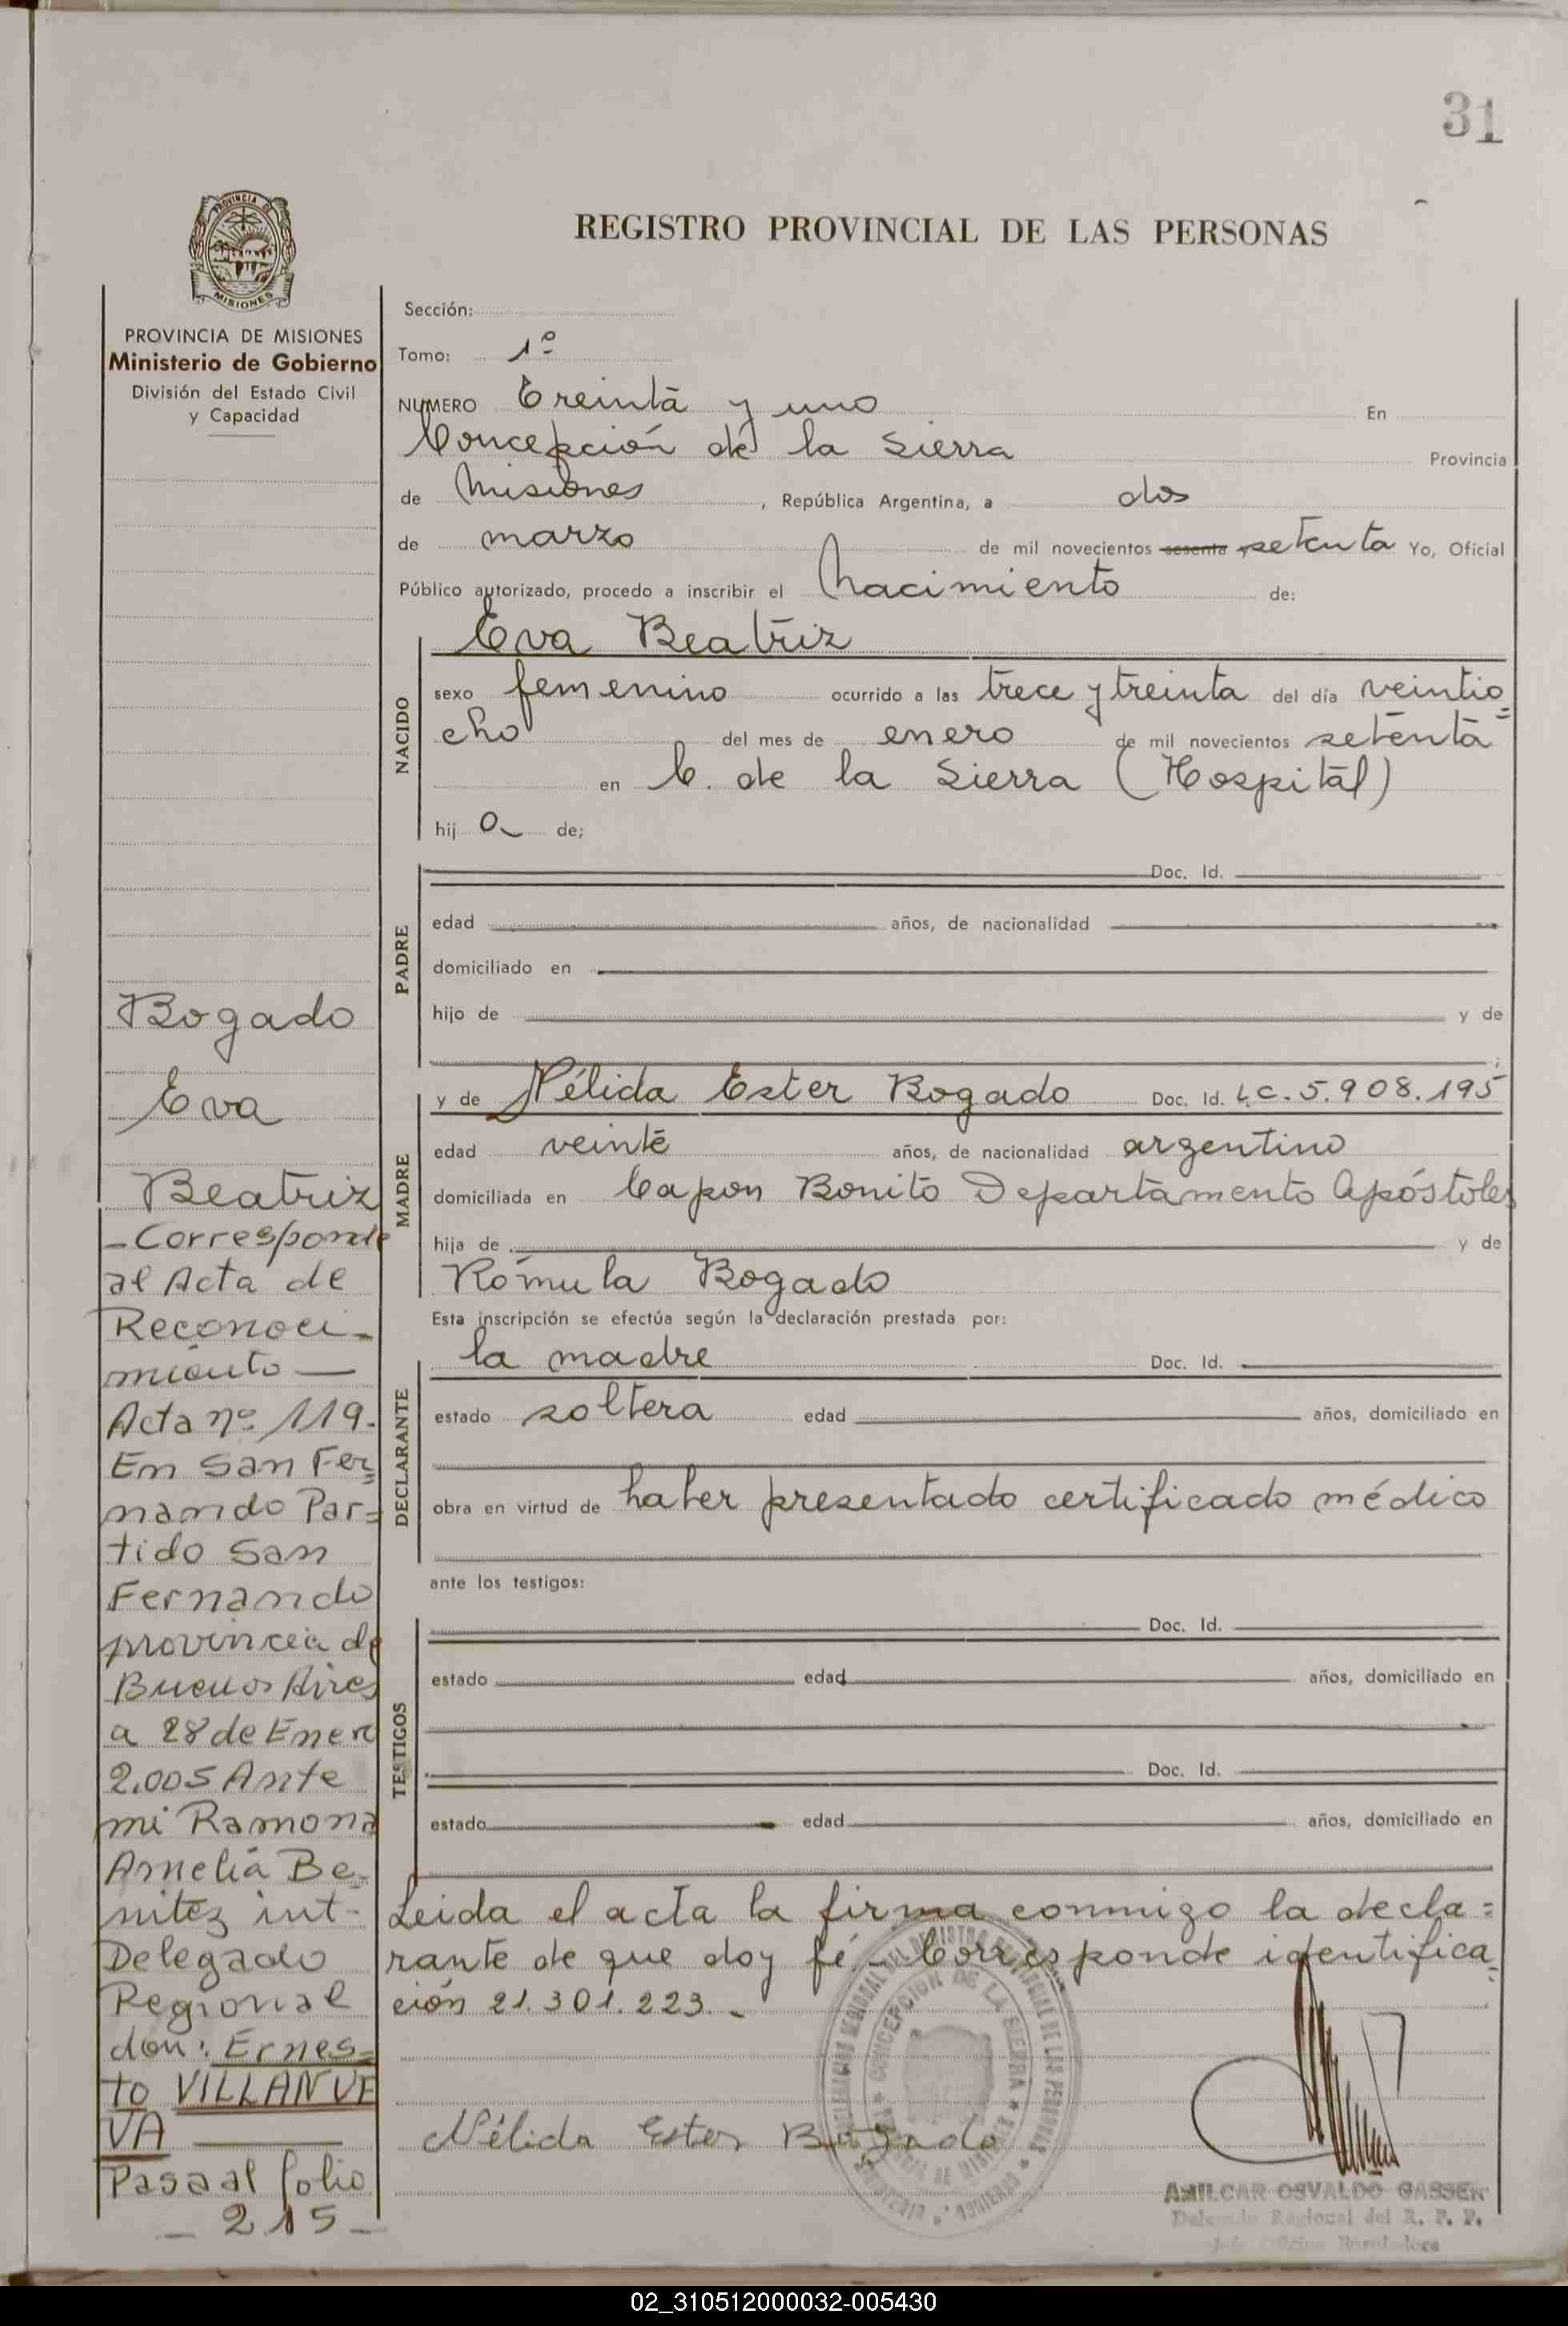 31
REGISTRO PROVINCIAL DE LAS PERSONAS
PROVINCIA DE
MISIONES
PROVINCIA DE MISIONES
Ministerio de Gobierno
División del Estado Civil
y Capacidad
Sección:
Tomo: 1º
NUMERO Treinta y uno En
Concepción de la Sierra Provincia
de Misiones, República Argentina, a dos
de marzo de mil novecientos sesenta setenta Yo, Oficial
Público autorizado, procedo a inscribir el Nacimiento de:
NACIDO
Eva Beatriz
sexo femenino ocurrido a las trece y treinta del día veintio=
cho del mes de enero de mil novecientos setenta
en C. de la Sierra (Hospital)
hij a de;
PADRE
Doc. Id.
edad años, de nacionalidad
domiciliado en
hijo de y de
;
MADRE
y de Nélida Ester Bogado Doc. Id. L.C. 5.908.195
edad veinte años, de nacionalidad argentino
domiciliada en Capon Bonito Departamento Apóstoles
hija de y de
Rómula Bogado
Esta inscripción se efectúa según la declaración prestada por:
DECLARANTE
la madre Doc. Id.
estado soltera edad años, domiciliado en
obra en virtud de haber presentado certificado médico
ante los testigos:
TESTIGOS
Doc. Id.
estado edad años, domiciliado en
Doc. Id.
estado edad años, domiciliado en
Leida el acta la firma conmigo la decla=
rante de que doy fé.- Corresponde identifica=
ción 21.301.223.-
Nélida Ester Bogado
CONCEPCION DE LA SIERRA
AMILCAR OSVALDO GASSEN
Delegado Regional del R. P. P.
Bogado
Eva
Beatriz
-Corresponde
al Acta de
Reconoci-
miento —
Acta nº 119.
En San Fer=
nando Par=
tido San
Fernando
provincia de
Buenos Aires
a 28 de Enero
2.005 Ante
mi Ramona
Amelia Be-
nitez int-
Delegado
Regional
don: Ernes=
to VILLANUE
VA
Pasa al folio
- 215 -
02_310512000032-005430